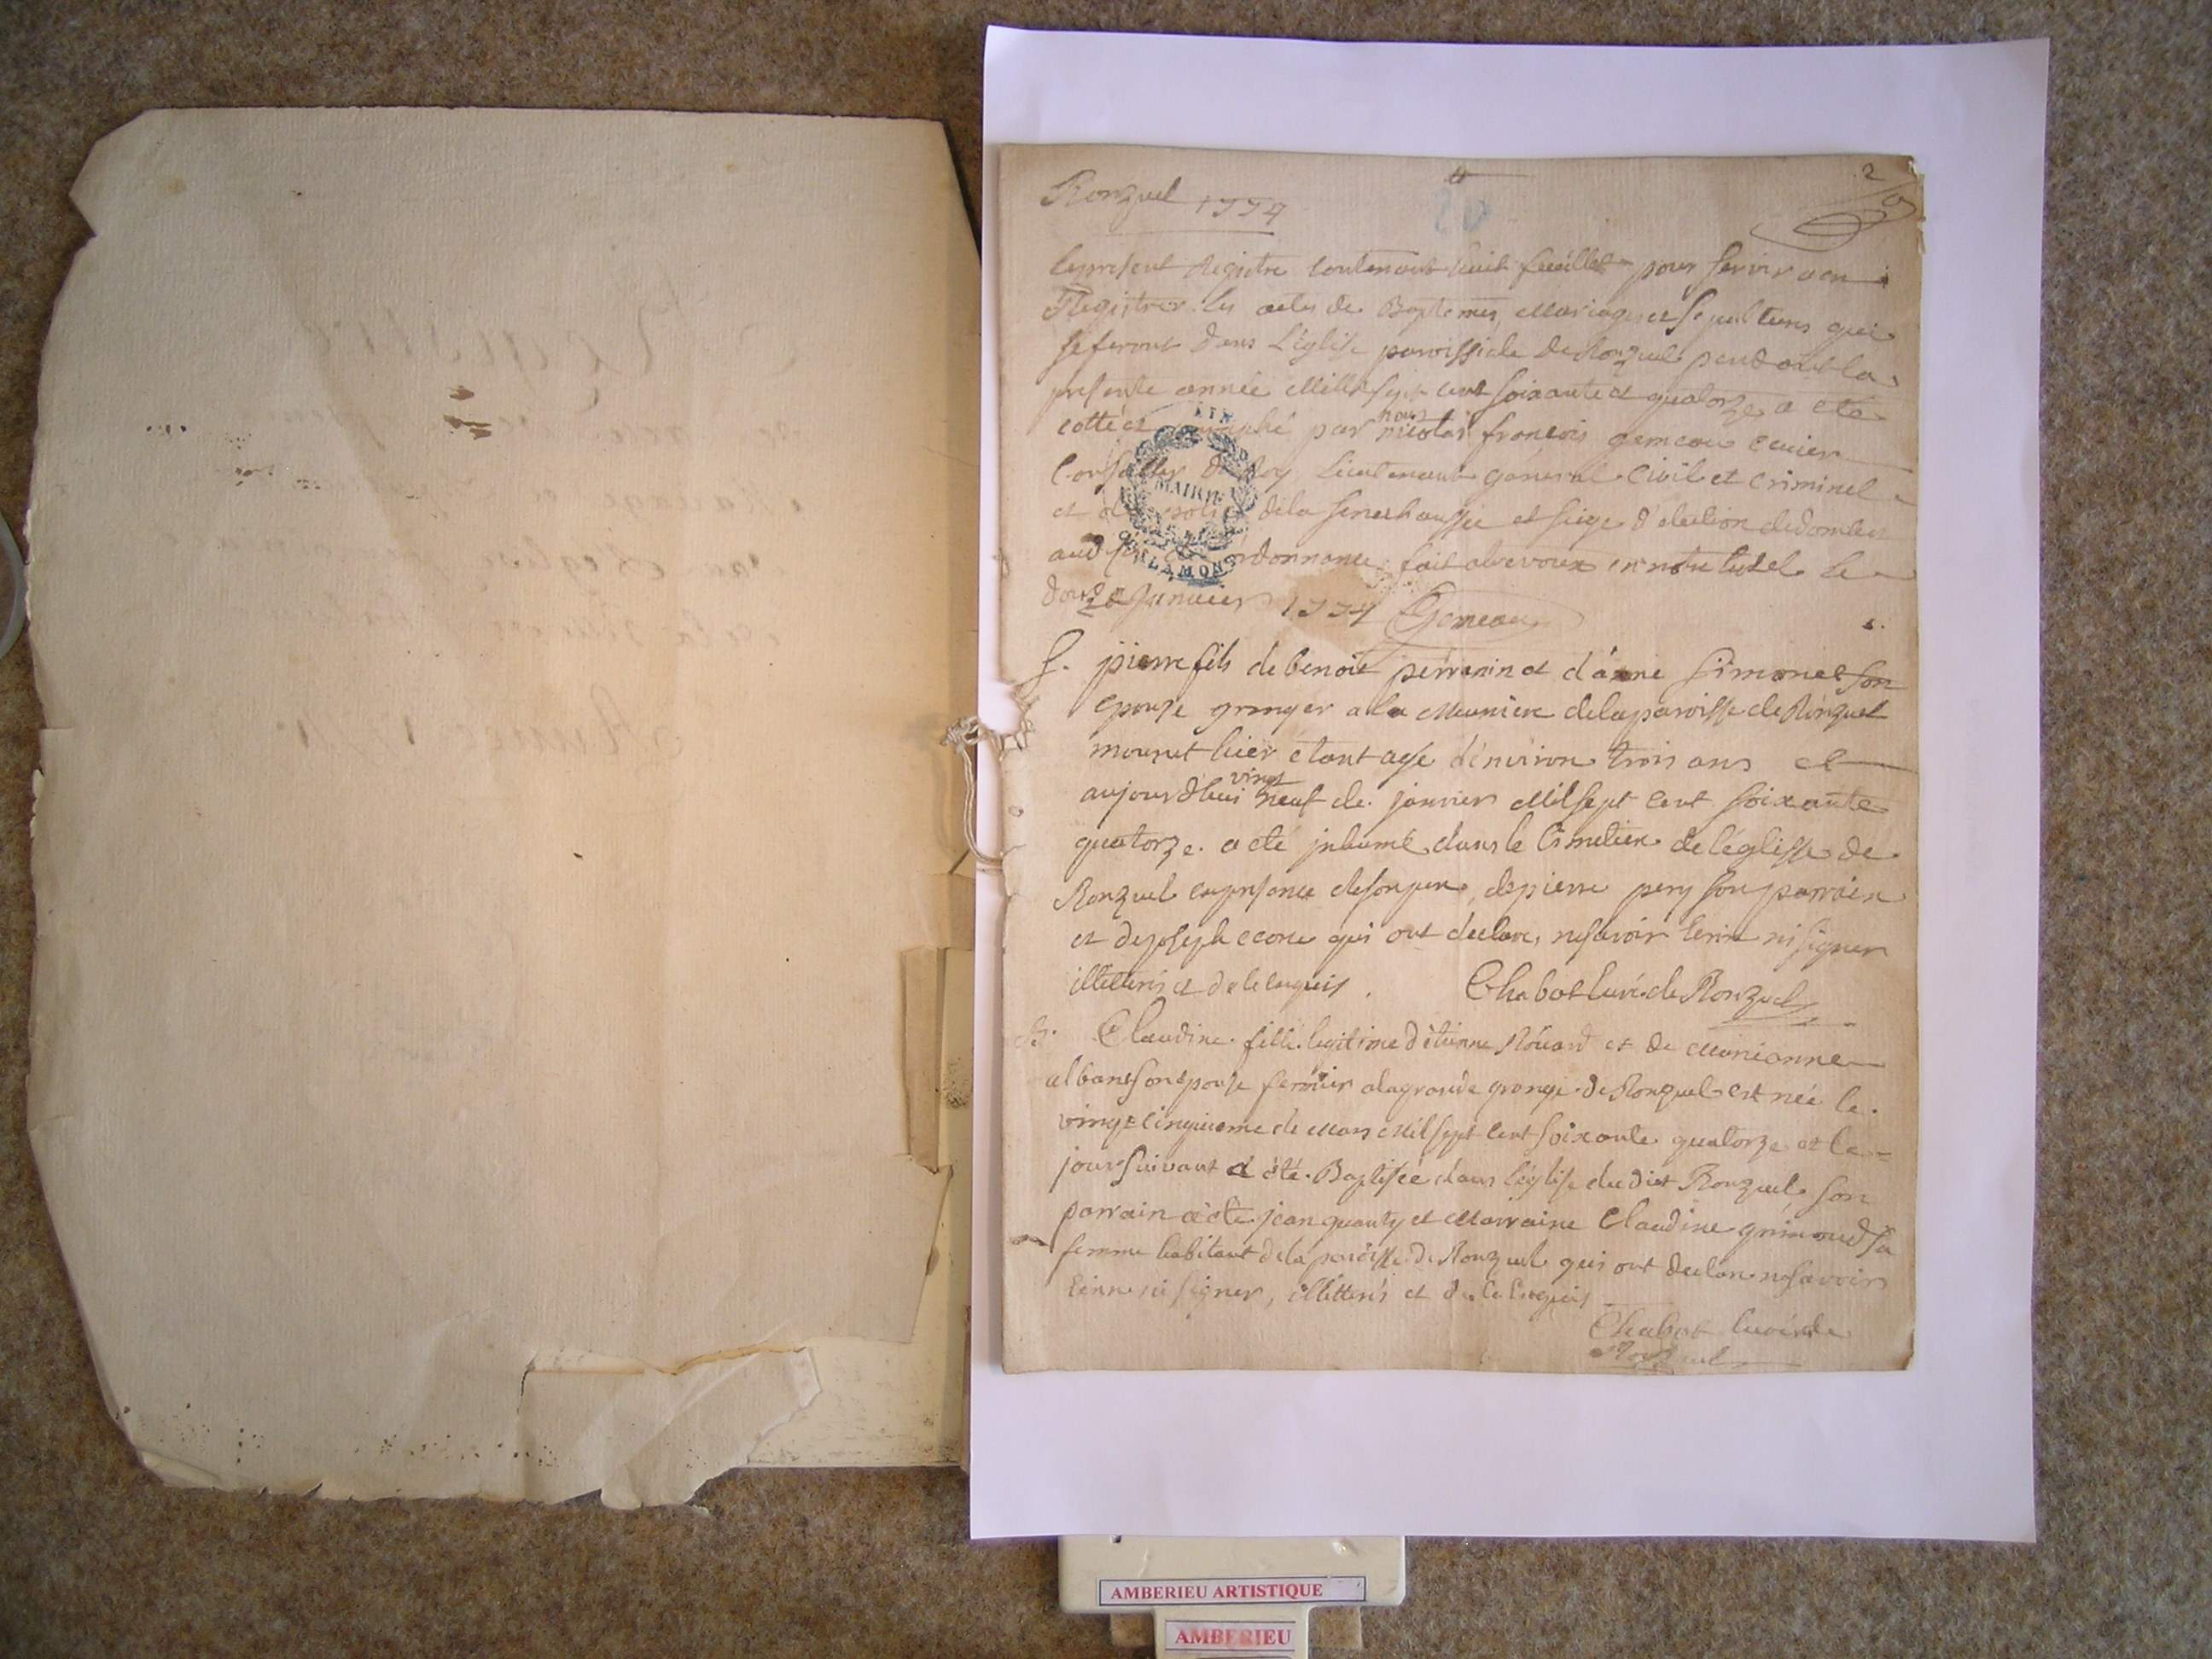 Ronzuel 1774
2
20
Le present Registre contenant huit feuillets pour servir a en
Registrer les actes de Baptemes, Mariages et Sepultures qui
se feront dans L'église paroissiale de Ronzuel pendant la
presente année Mille sept cent soixante et quatorze a eté
cotté et paraphé par nous nicolas françois gemeau Ecuier
Conseiller du Roy Lieutenant général Civil et Criminel
et de police de la senechaussée et siege d'election de dombes
ordonnance fait a trevoux en notre hotel le
douze Janvier 1774 Gemeau
MAIRIE
CHALAMONT
S. pierre fils de benoit perranin et d'anne Simonet son
epouse granger a la Meunière de la paroisse de Ronzuel
mourut hier etant agé d'environ trois ans et
aujourd'hui vingt neuf de janvier Mil sept cent soixante
quatorze a eté inhumé dans le Cimetiere de l'églisse de
Ronzuel en presence de son pere, de pierre pery son parrain
et de joseph qui ont declaré ne savoir Ecrire ni signer
illitterés et de ce enquis. Chabot Curé de Ronzuel
B. Claudine fille legitime d'étienne Rouard et de Marianne
alban son epouse fermier a la grande grange de Ronzuel est née le
vingt cinquieme de Mars Mil sept cent soixante quatorze et le
jour suivant a été Baptisée dans l'église du dit Ronzuel son
parrain a été jean quanty et Marraine Claudine grimaud sa
femme habitant de la paroisse de Ronzuel qui ont declaré ne savoir
Ecrire ni signer, illitterés et de ce Enquis
Chabot Curé de
Ronzuel
AMBERIEU ARTISTIQUE
AMBERIEU